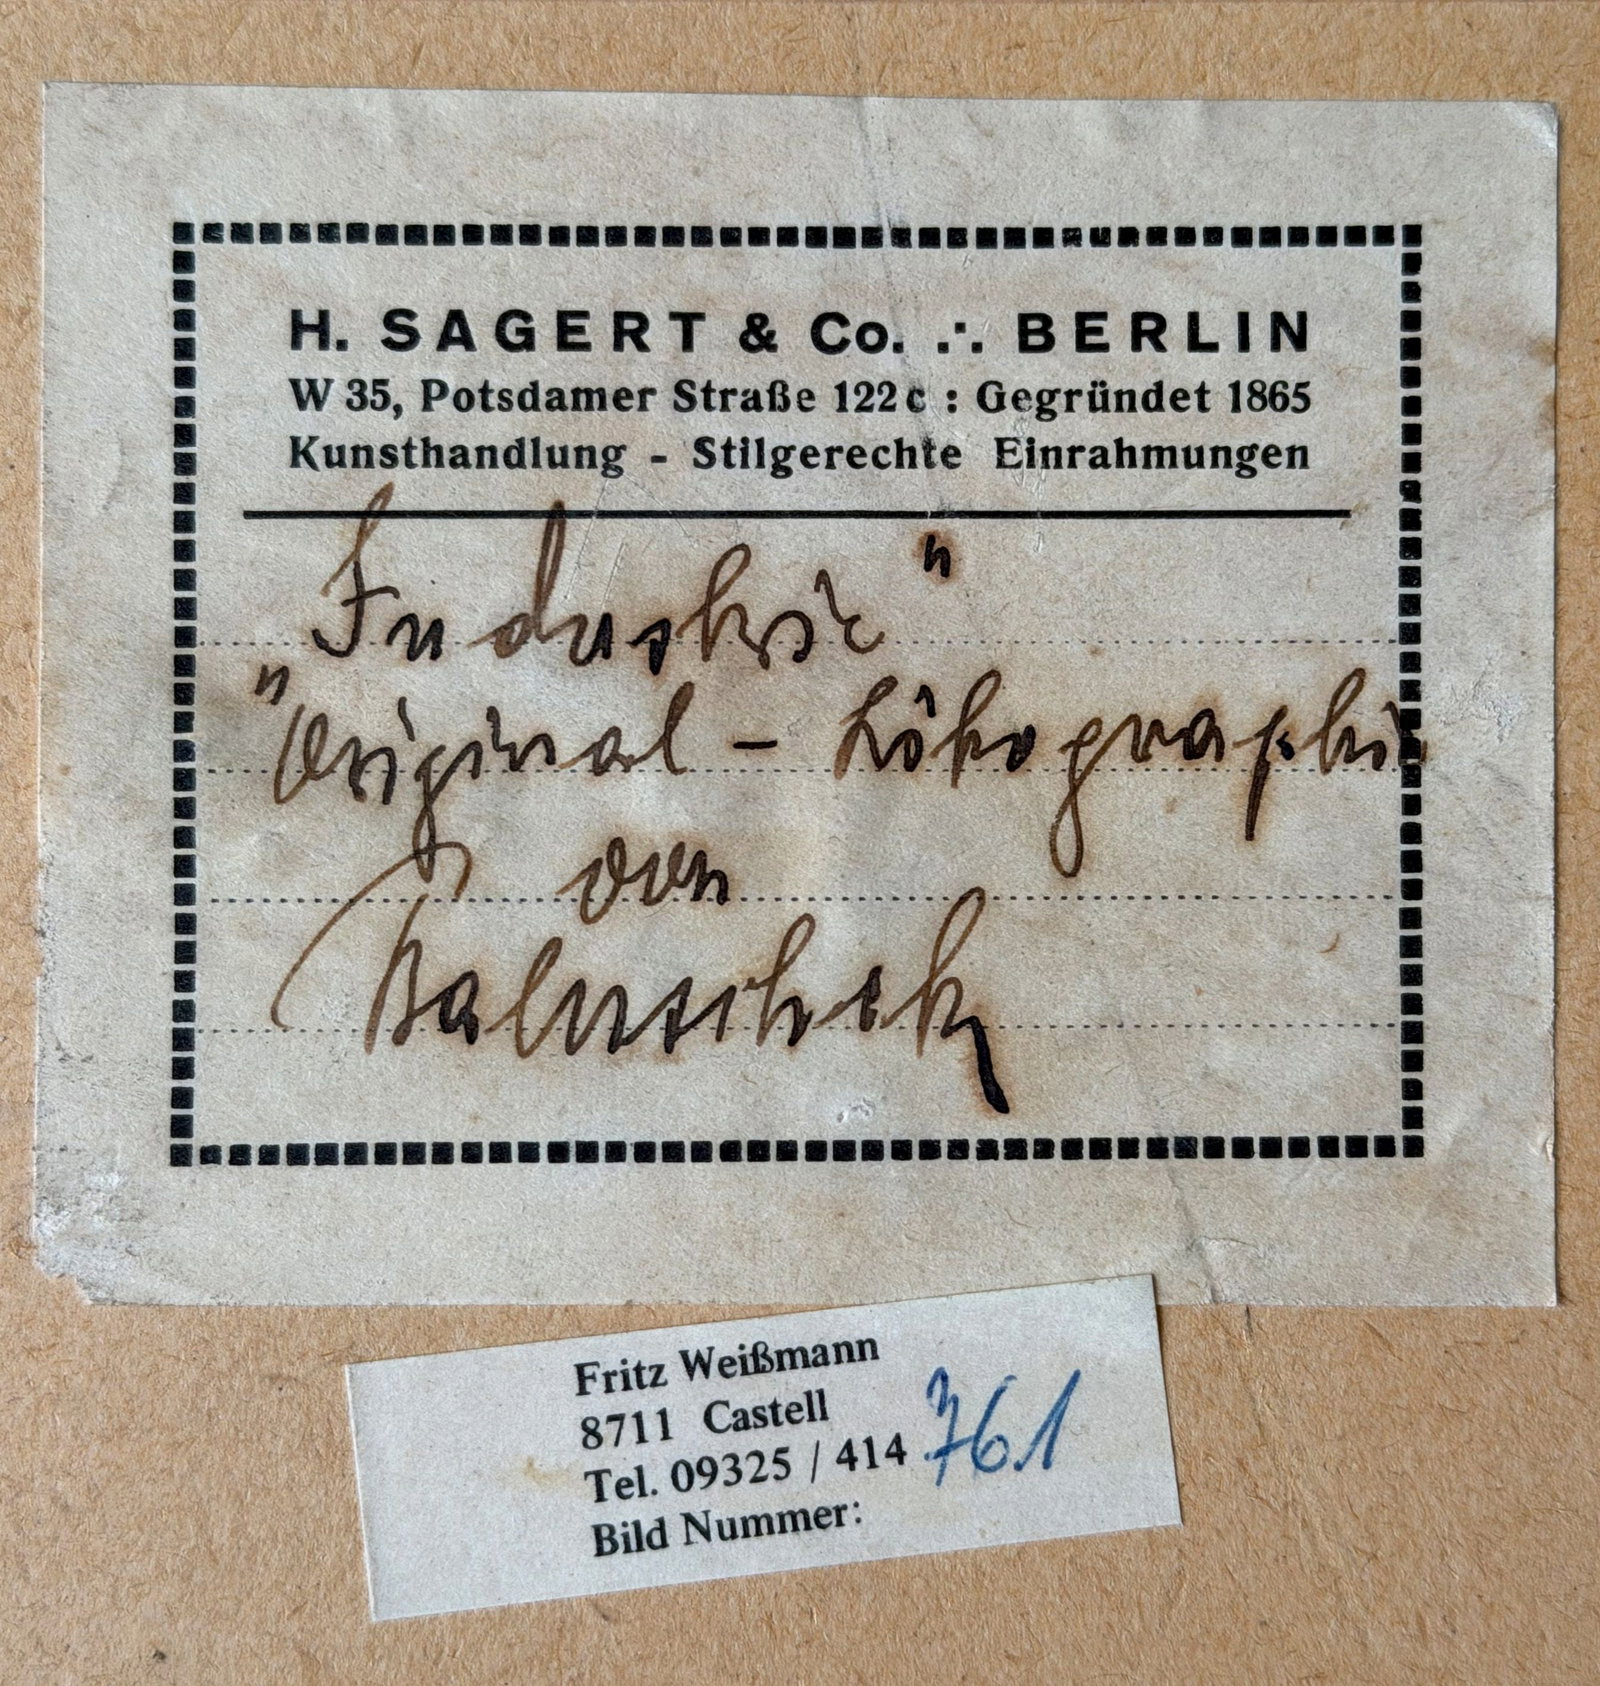 H. SAGERT & Co. ∴ BERLIN
W 35, Potsdamer Straße 122c : Gegründet 1865
Kunsthandlung - Stilgerechte Einrahmungen
Industrie "
" Original - Lithographie
von
Baluschek
Fritz Weißmann
8711 Castell
Tel. 09325 / 414 761
Bild Nummer: